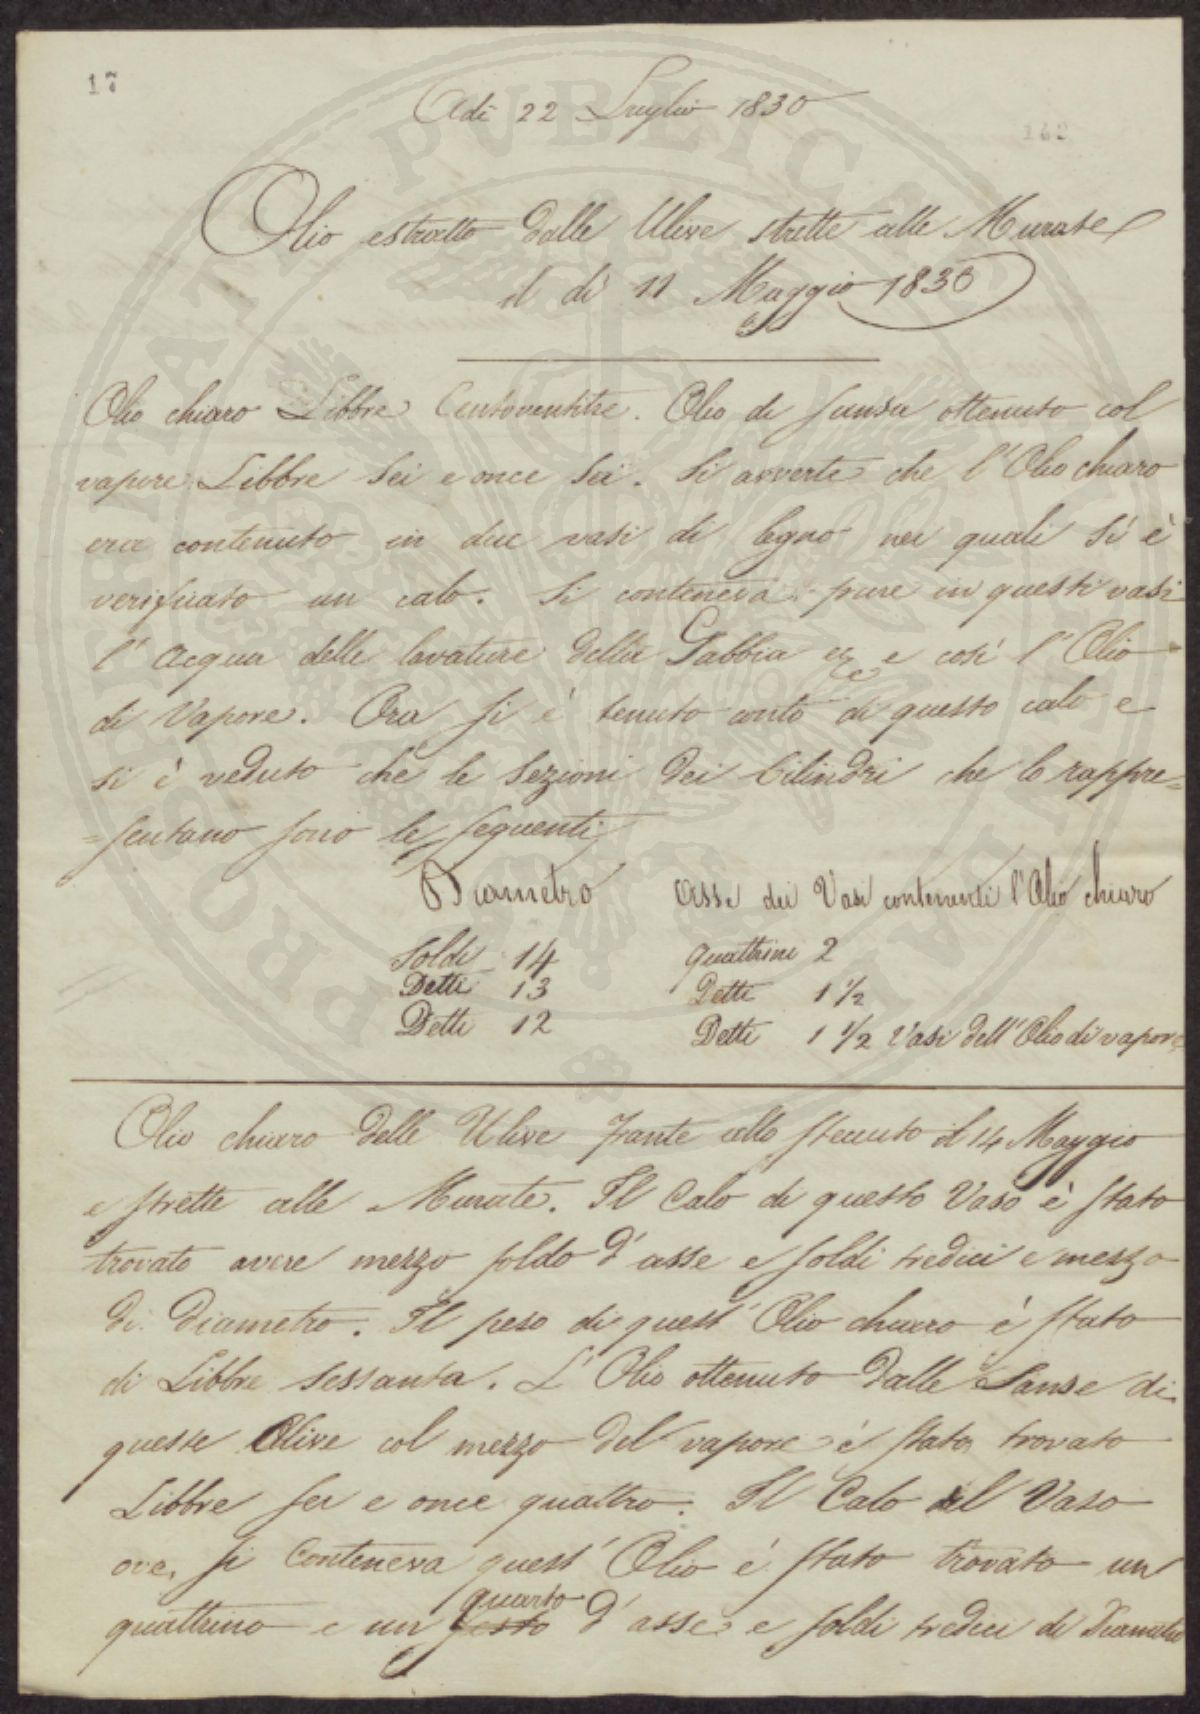 17
Adì 22 Luglio 1830
142
Olio estratto dalle Ulive strette alle Murate
il dì 11 Maggio 1830
Olio chiaro Libbre Centoventitre. Olio di sansa ottenuto col
vapore Libbre Sei e once Sei. Si avverte che l'Olio chiaro
era contenuto in due vasi di legno nei quali Si è
verificato un calo. Si conteneva pure in questi vasi
l'Acqua delle lavature della Gabbia e così l'Olio
di Vapore. Ora si è tenuto conto di questo calo e
si è veduto che le Sezioni dei Cilindri che lo rappre=
=sentano sono le seguenti
Diametro Asse dei Vasi contenenti l'Olio chiaro
Soldi 14 quattrini 2
Detti 13 Detti 1 1/2
Detti 12 Detti 1 1/2 Vasi dell'Olio di vapore
Olio chiaro delle Ulive frante allo Stecuto il 14 Maggio
e strette alle Murate. Il Calo di questo Vaso è stato
trovato avere mezzo soldo d'asse e soldi tredici e mezzo
di Diametro. Il peso di quest'Olio chiaro è stato
di Libbre Sessanta. L'Olio ottenuto dalle Sanse di
queste Olive col mezzo del vapore è stato trovato
Libbre sei e once quattro. Il Calo del Vaso
ove si Conteneva quest'Olio è stato trovato un
quarto
quattrino e un sesto d'asse e soldi tredici di Diametro
PROSPERITATI PUBLICAE AUGENDAE